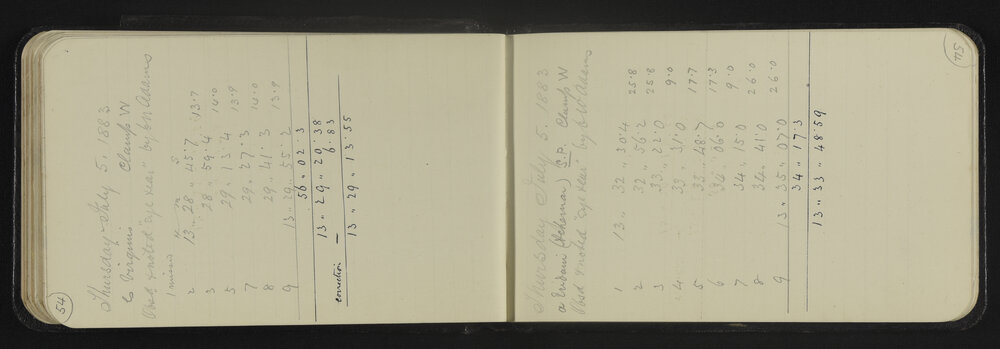 54
Thursday July 5. 1883
Virginis Clamp W
Obsd & noted "eye & ear" by C W Adams
h m s
1 missed
2 13 " 28 " 45.7 13.7
3 28 " 59.4 14.0
5 29 " 13.4 13.9
7 29 " 27.3 14.0
8 29 " 41.3 13.9
9 13 " 29 " 55.2
56 " 02.3
13 " 29 " 20.38
correction — 6.83
13 " 29 " 13.55
115
Thursday July 5. 1883
α Eridani (Achernar) S.P. Clamp W
Obsd & noted "eye & ear" by C W Adams
1 13 " 32 " 30.4 25.8
2 32 " 56.2 25.8
3 33 " 22.0 9.0
4 33 " 31.0 17.7
5 33 " 48.7 17.3
6 34 " 06.0 9.0
7 34 " 15.0 26.0
8 34 " 41.0 26.0
9 13 " 35 " 07.0
34 " 17.3
13 " 33 " 48.59